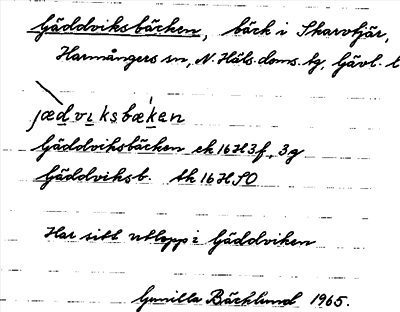 Gäddviksbäcken, bäck i Skarvtjär,
Harmångers sn, N. Häls. doms. tg, Gävl. l
jædvıksbækan
Gäddviksbäcken ek 16H3f, 3g
Gäddviksb. tk 16H SO
Har sitt utlopp i Gäddviken
Gunilla Bäcklund 1965.